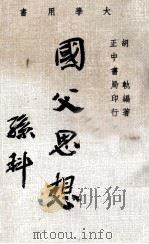 大學用書
胡軌編著
正中書局印行
國父思想
孫科